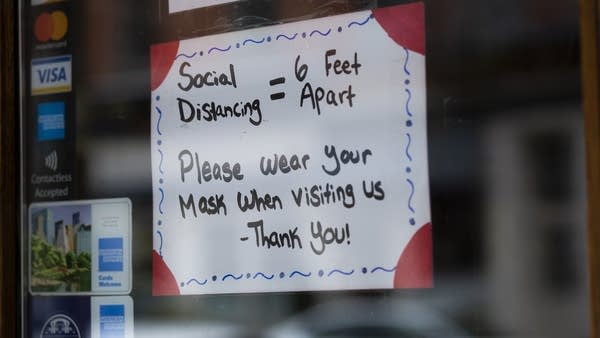 mastercard
VISA
Contactless
Accepted
Cards
Welcome
Social
Distancing
= 6 Feet
Apart
Please wear your
Mask when visiting us
-Thank You!